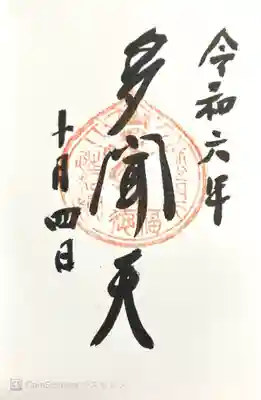 令和六年
多聞天
十月四日